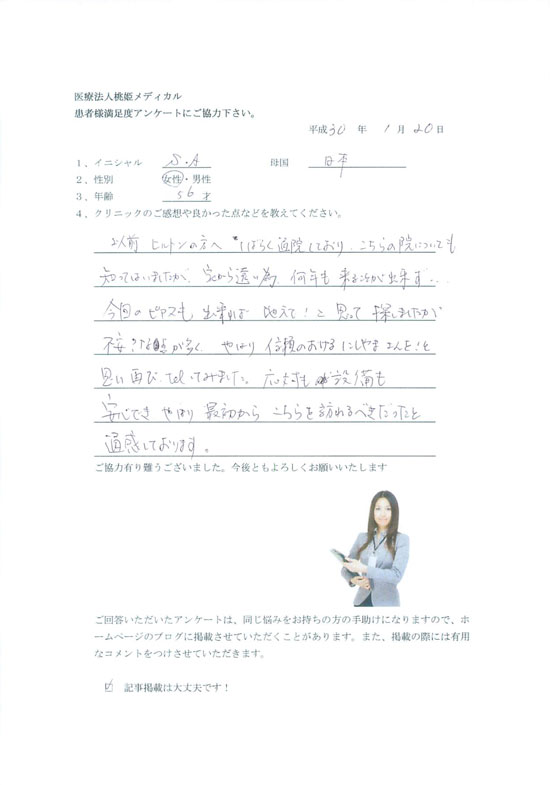 医療法人桃姫メディカル
患者様満足度アンケートにご協力下さい。
平成 30 年 1 月 20 日
1．イニシャル S.A 母国 日本
2．性別 女性・男性
3．年齢 56才
4．クリニックのご感想や良かった点などを教えてください。
以前 ヒルトンの方へ しばらく通院しており、こちらの院についても
知ってはいましたが、家から遠い為 何年も 来ることが出来ず…
今回のピアスも 出来れば 地元で！と 思って 探しましたが
不安 が多く、やはり 信頼のおける にしやまさんを！と
思い 再び、telしてみました。応対も 設備も
安心でき やはり 最初から こちらを訪れるべきだったと
痛感しております。
ご協力有り難うございました。今後ともよろしくお願いいたします
ご回答いただいたアンケートは、同じ悩みをお持ちの方の手助けになりますので、ホ
ームページのブログに掲載させていただくことがあります。また、掲載の際には有用
なコメントをつけさせていただきます。
☑ 記事掲載は大丈夫です！